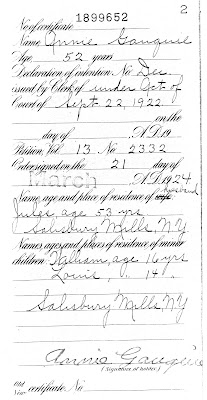 2
No of certificate 1899652
Name Annie Gauquie
Age 52 years
Declaration of intention No Dec.
issued by Clerk of under Act of
Court of Sept. 22, 1922
on the
day of A.D. 19
Petition, Vol 13 No 2332
Order signed on the 21 day of
March A.D. 1924
Name, age and place of residence of husband
Jules, age 53 yrs
Salisbury Mills, N.Y.
Names, ages and places of residence of minor
children William, age 16 yrs
Louis, " 14 "
Salisbury Mills N.Y
Annie Gauquie
(Signature of holder)
Old certificate No
New